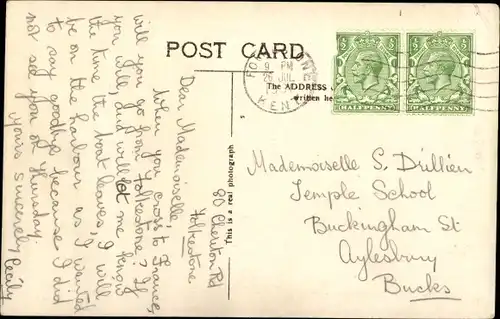 POST CARD
9 PM
26 JUL
KENT
HALFPENNY
HALFPENNY
The ADDRESS
written he
This is a real photograph
80 Cheriton Rd
Folkestone
Dear Mademoiselle,
When you cross to France,
will you go from Folkestone? If
you will, and will let me know
the time the boat leaves, I will
be on the harbour as I wanted
to say goodbye because I did
not see you on Thursday.
Yours sincerely,
Cecily
Mademoiselle S. Drillien
Temple School
Buckingham St
Aylesbury
Bucks